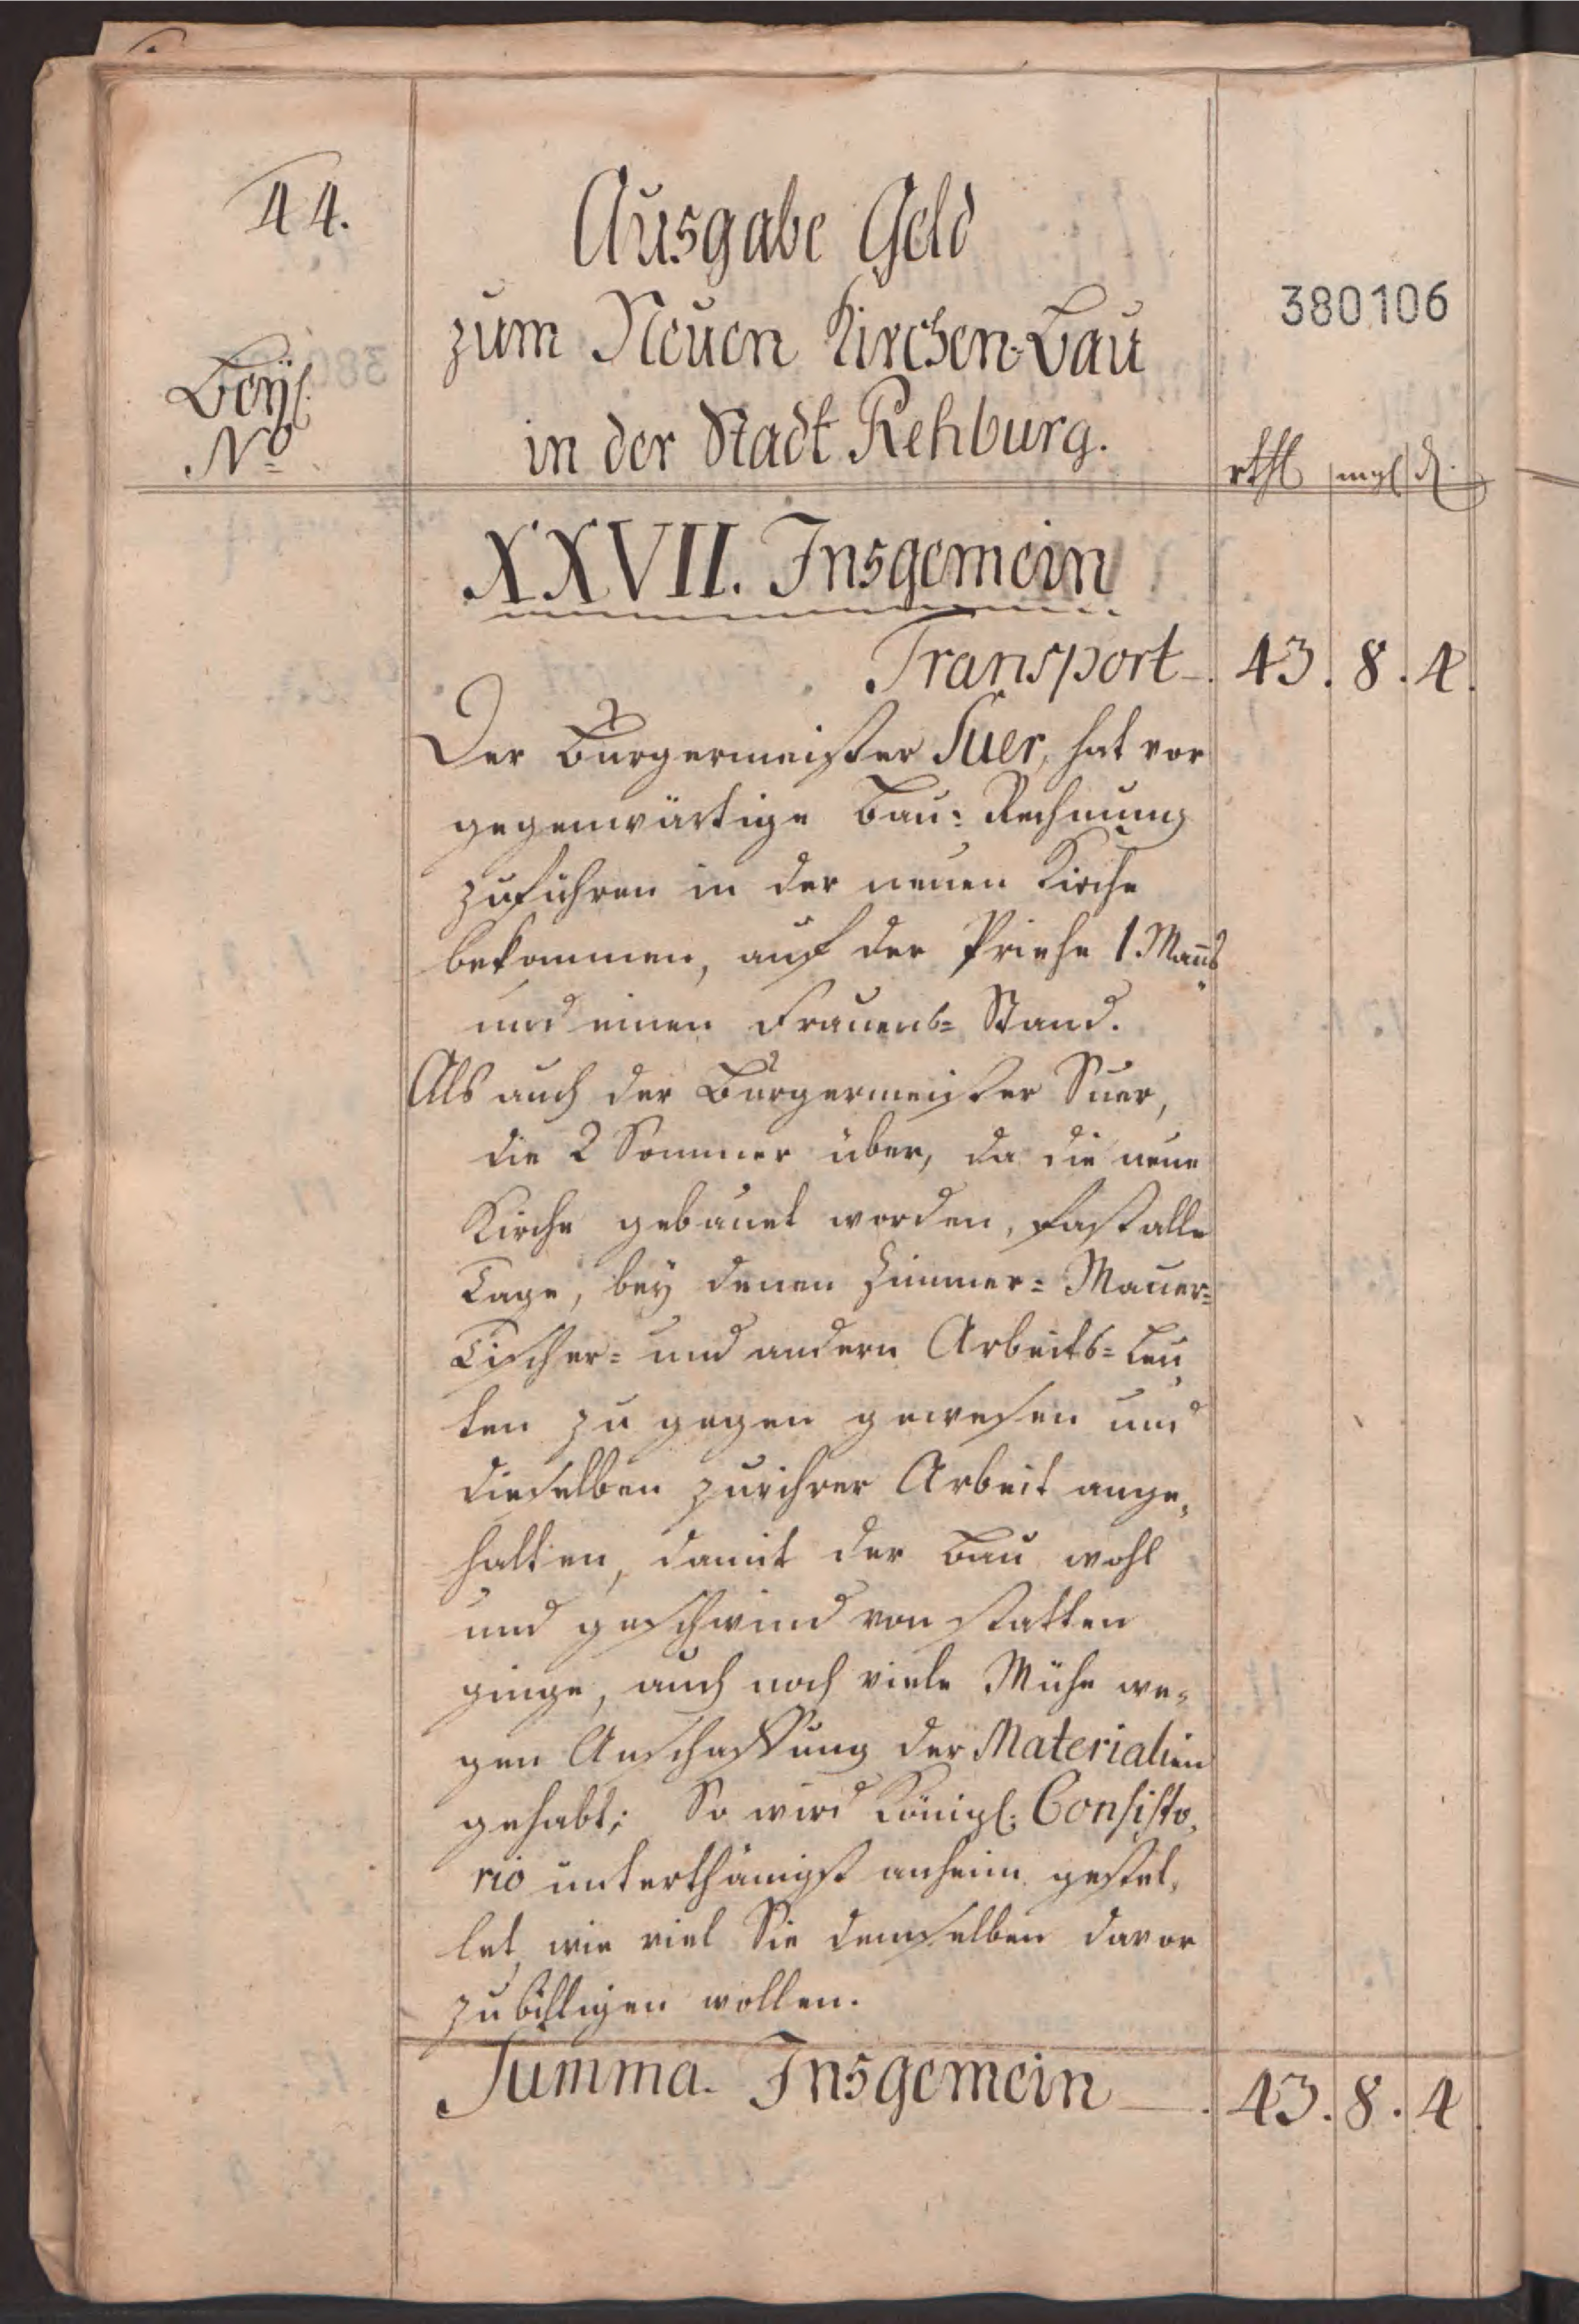 44.
Ausgabe Geld
zum Neuen Kirchen-Bau
in der Stadt Rehburg.
380106
Beyl.
No
rthl mgl d.
XXVII. Insgemein
Transport 43. 8. 4.
Der Bürgermeister Suer, hat vor
gegenwärtige Bau: Rechnung
zuführen in der neuen Kirche
bekommen, auf der Prieche 1. Manns
und einen Frauens= Stand.
Als auch der Bürgermeister Suer,
die 2 Sommer über, da die neue
Kirche gebauet worden, fast alle
Tage, bey denen Zimmer= Mauer=
Tischer= und andern Arbeits= Leu,
ten zu gegen gewesen und
dieselben zu ihrer Arbeit ange,
halten, damit der Bau wohl
und geschwind von statten
ginge, auch noch viele Mühe we,
gen Anschaffung der Materialien
gehabt; So wird Königl. Consisto,
rio unterthänigst anheim gestel,
let, wie viel Sie demselben davor
zu billigen wollen.
Summa. Insgemein 43. 8. 4.